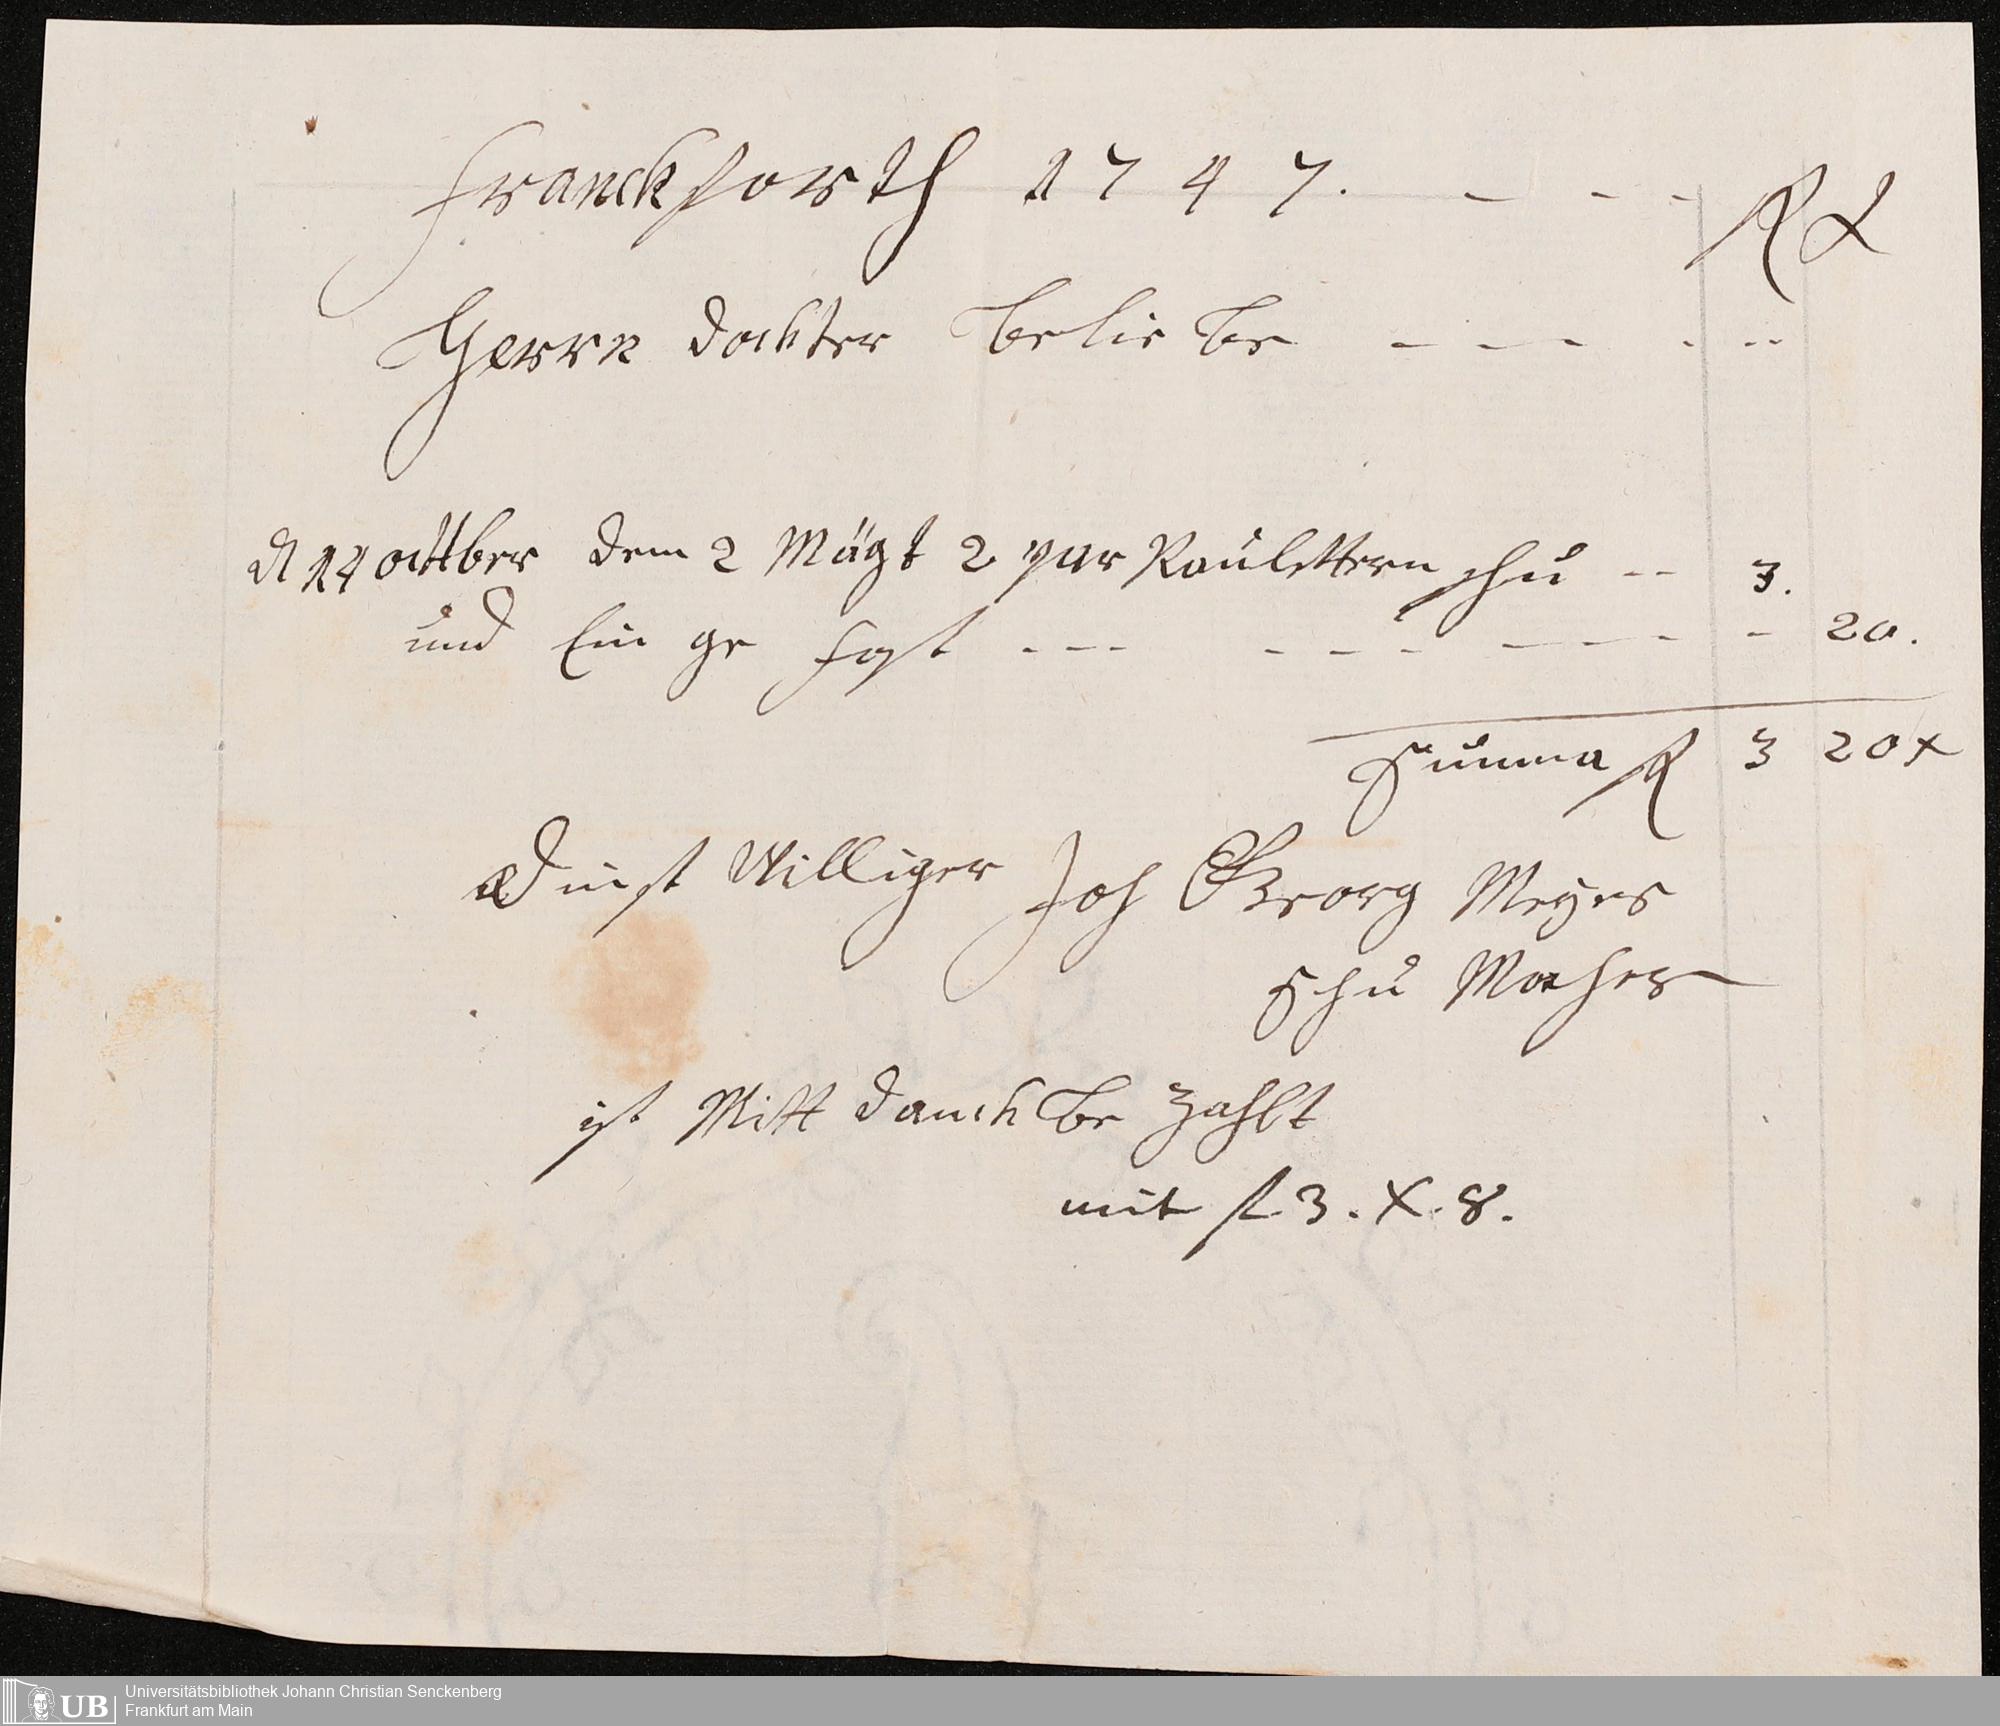 Franckforth 1747. - - - R x
Herrn dockter beliebe - - - - --
d 14 octtber dem 2 Mägt 2 par Raulettern schu -- 3.
und Ein ge fast --- --- ---- - 20.
Summa R 3 20 x
Dinst Williger Joh Georg Meyer
schu Macher
ist Mitt danck be zahlt
mit fl. 3. X. 8.
UB
Universitätsbibliothek Johann Christian Senckenberg
Frankfurt am Main